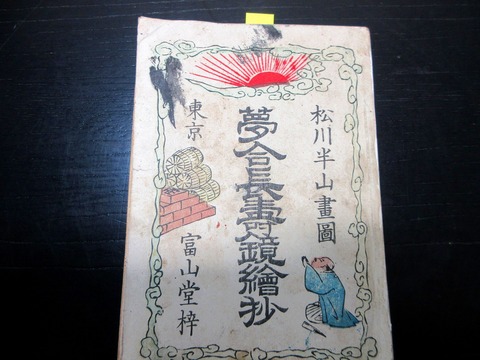 松川半山畫圖
夢合長壽鏡繪抄
東京
富山堂梓